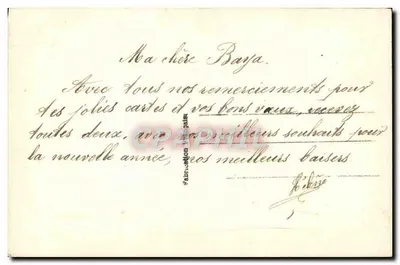 Ma chère Baya.
Avec tous nos remerciements pour
tes jolies cartes et vos bons vœux, recevez
toutes deux, avec nos meilleurs souhaits pour
la nouvelle année, nos meilleurs baisers
Fabrication